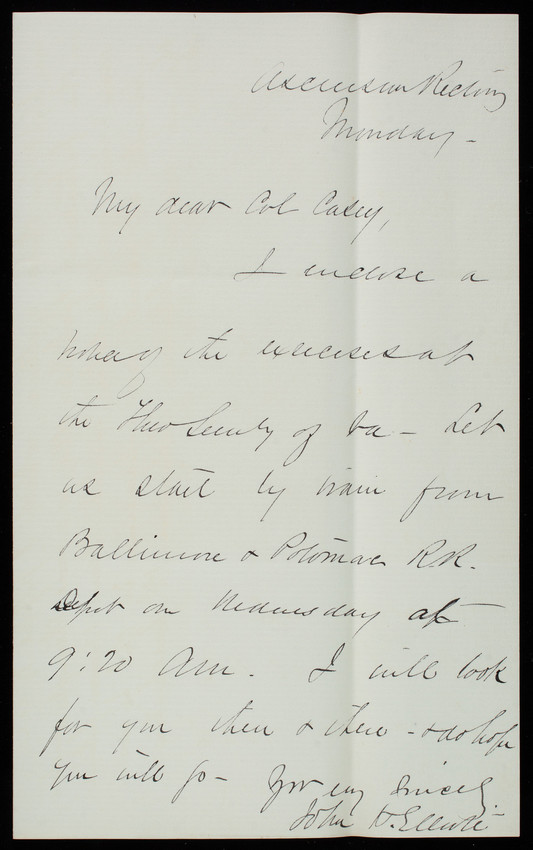 Ascension Rectory
Monday -
My dear Col Casey,
I enclose a
notice of the exercises at
the Theo Semly of Va - Let
us start by train from
Baltimore & Potomac R.R.
Depot on Wednesday at
9:20 Am. I will look
for you then & there - & do hope
you will go - Yrs very sincely
John H. Elliott